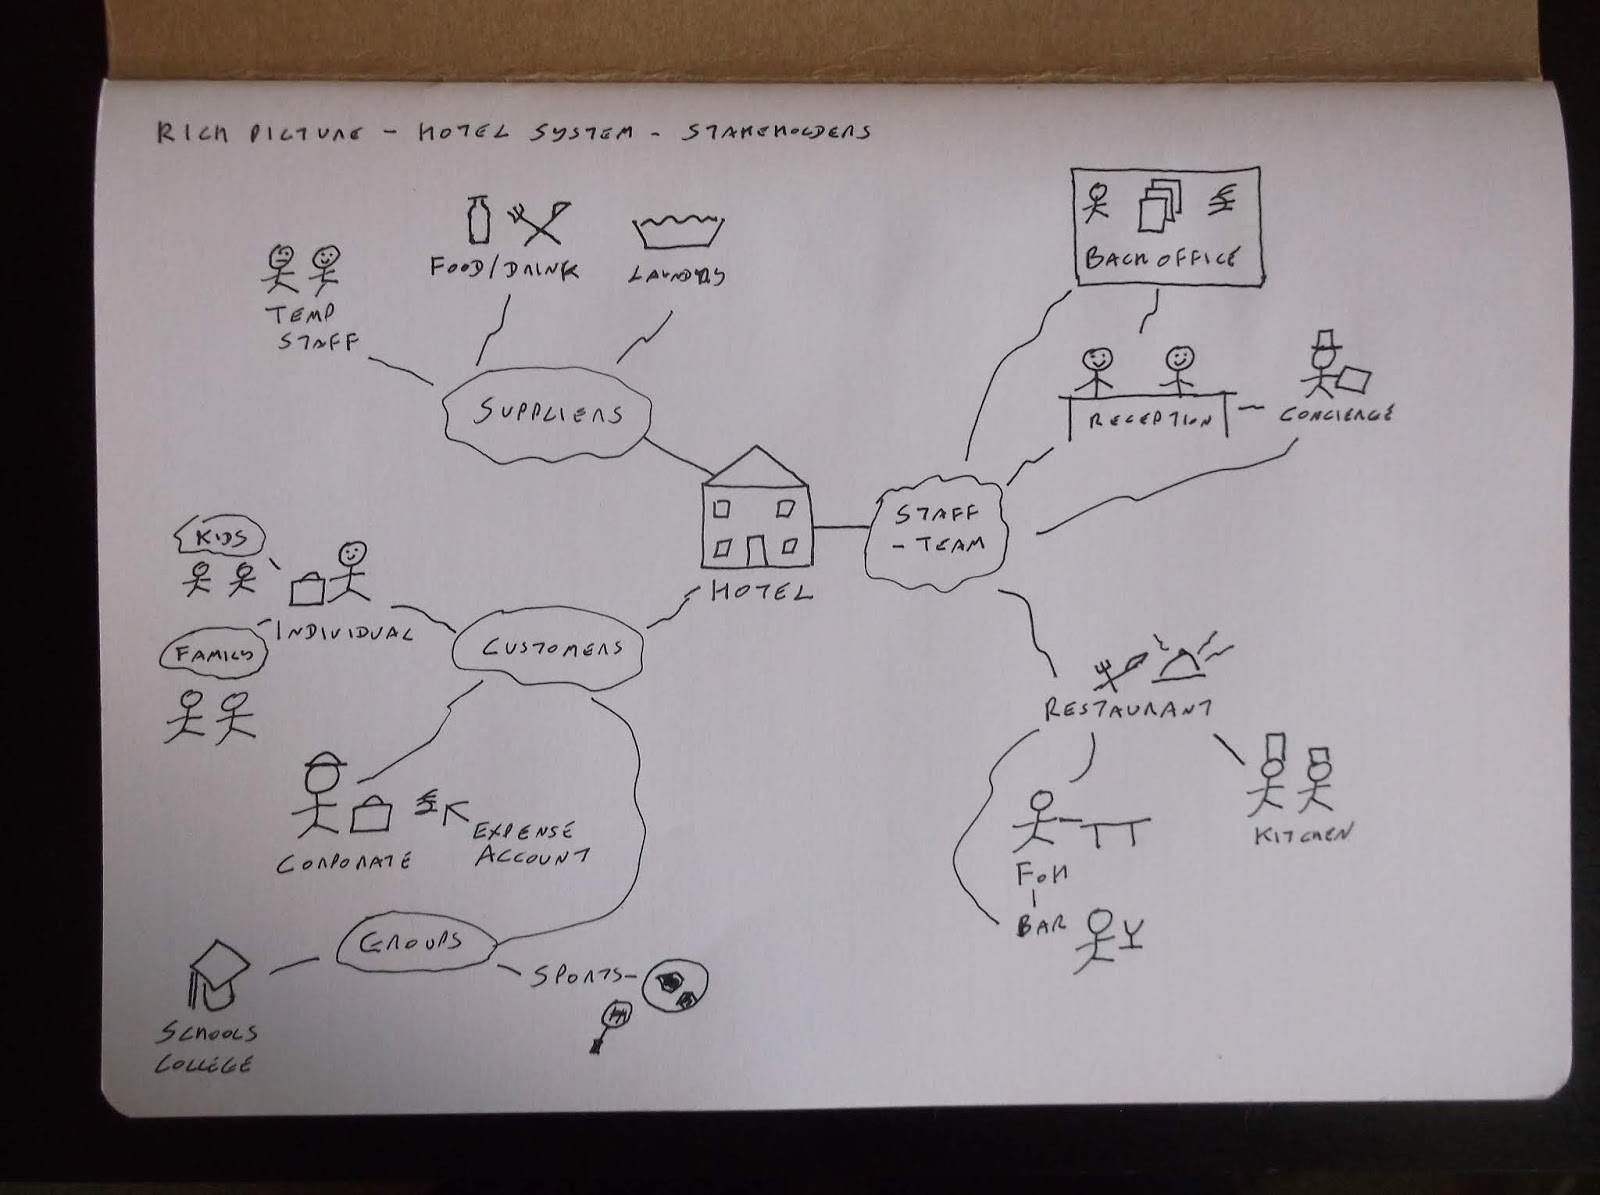 RICH PICTURE - HOTEL SYSTEM - STAKEHOLDERS
BACK OFFICE
FOOD/DRINK
LAUNDRY
TEMP
STAFF
SUPPLIERS
RECEPTION
CONCIERGE
STAFF
- TEAM
HOTEL
KIDS
INDIVIDUAL
FAMILY
CUSTOMERS
RESTAURANT
EXPENSE
ACCOUNT
CORPORATE
KITCHEN
FOH
BAR
GROUPS
SPORTS
SCHOOLS
COLLEGE